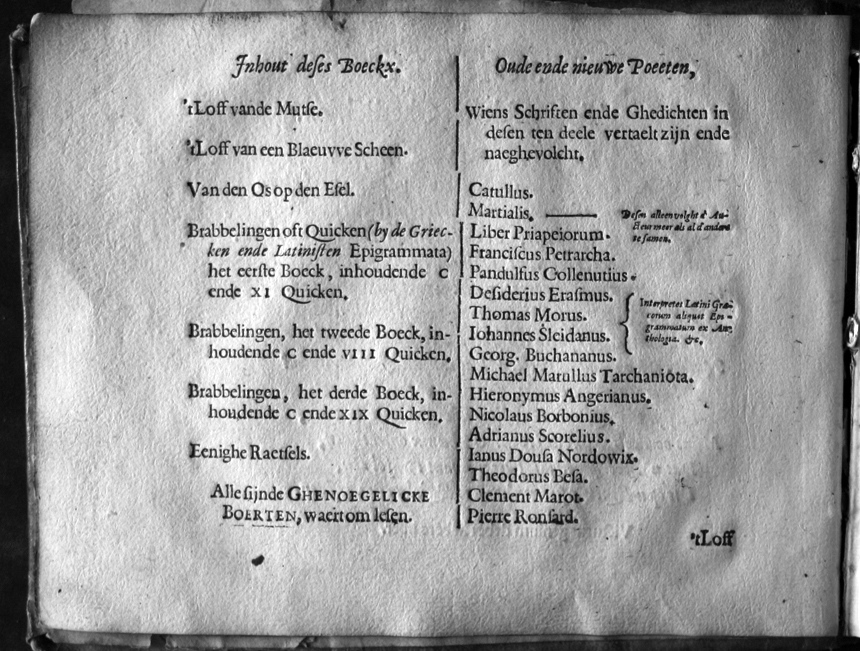 Inhout deses Boeckx.
'tLoff vande Mutse.
'tLoff van een Blaeuvve Scheen.
Van den Os op den Esel.
Brabbelingen oft Quicken (by de Griec-
ken ende Latinisten Epigrammata)
het eerste Boeck, inhoudende C
ende XI Quicken.
Brabbelingen, het tweede Boeck, in-
houdende C ende VIII Quicken.
Brabbelingen, het derde Boeck, in-
houdende C ende XIX Quicken.
Eenighe Raetsels.
Alle sijnde GHENOEGELICKE
BOERTEN, waert om lesen.
Oude ende nieuwe Poeeten,
Wiens Schriften ende Ghedichten in
desen ten deele vertaelt zijn ende
naeghevolcht.
Catullus.
Martialis. Desen alleen volght d' Au-
theur meer als al d'andere
te samen.
Liber Priapeiorum.
Franciscus Petrarcha.
Pandulfus Collenutius.
Desiderius Erasmus.
Thomas Morus.
Iohannes Sleidanus.
Georg. Buchananus.
Interpretes Latini Græ-
corum aliquot Epi-
grammatum ex An-
thologia. &c.
Michael Marullus Tarchaniota.
Hieronymus Angerianus.
Nicolaus Borbonius.
Adrianus Scorelius.
Ianus Dousa Nordowix.
Theodorus Besa.
Clement Marot.
Pierre Ronsard.
'tLoff